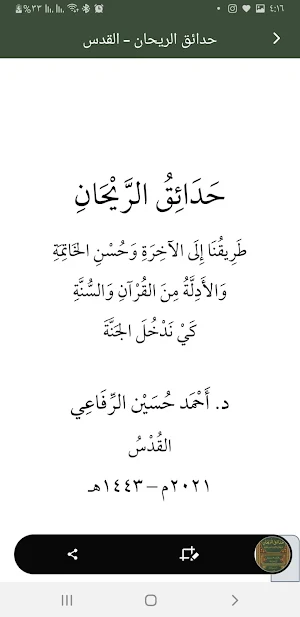 ٤:١٦ ٪٣٣
حدائق الريحان – القدس
حَدَائِقُ الرَّيْحَانِ
طَرِيقُنَا إِلَى الآخِرَةِ وَحُسْنِ الخَاتِمَةِ
وَالأَدِلَّةُ مِنَ القُرْآنِ وَالسُّنَّةِ
كَيْ نَدْخُلَ الجَنَّةَ
د. أَحْمَد حُسَيْن الرِّفَاعِي
القُدْسُ
٢٠٢١م – ١٤٤٣هـ